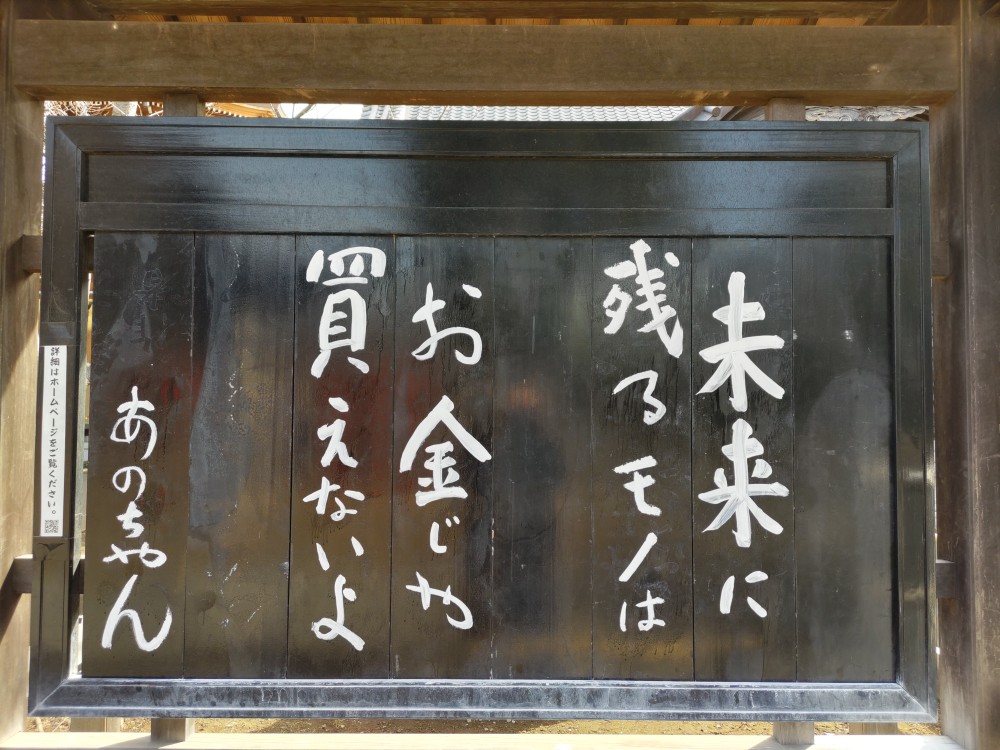 未来に
残るモノは
お金じゃ
買えないよ
あのちゃん
詳細はホームページをご覧ください。